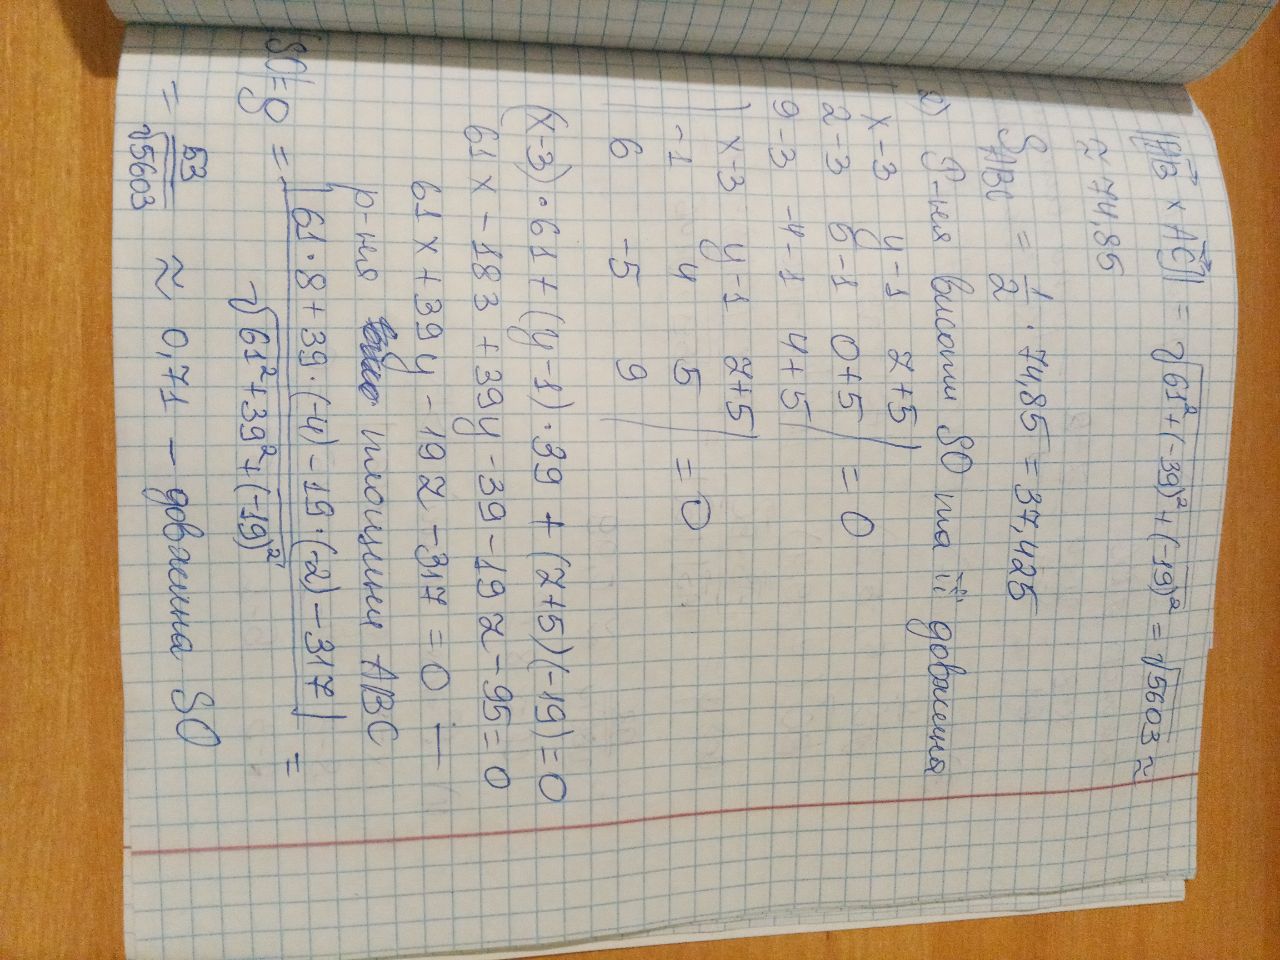 |[AB × AC]| = √61² + (-39)² + (-19)² = √5603 ≈
≈ 74,85
S_ABC = 1/2 · 74,85 = 37,425
2) Р-ня висоти SO та її довжина
| x-3 y-1 z+5 |
| 2-3 5-1 0+5 | = 0
| 9-3 -4-1 4+5 |
| x-3 y-1 z+5 |
| -1 4 5 | = 0
| 6 -5 9 |
(x-3)·61 + (y-1)·39 + (z+5)(-19) = 0
61x - 183 + 39y - 39 - 19z - 95 = 0
61x + 39y - 19z - 317 = 0 —
р-ня площини ABC
|SO| = ρ = |61·8 + 39·(-4) - 19·(-2) - 317| / √61² + 39² + (-19)² =
= 53/√5603 ≈ 0,71 – довжина SO